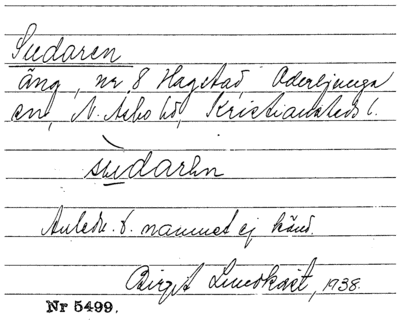 Sudaren
äng, nr 8 Hagstad, Oderljunga
sn, N. Åsbo hd, Kristianstads l.
sudaren
Anledn. t. namnet ej känd.
Birgit Lindkvist, 1938.
Nr 5499.